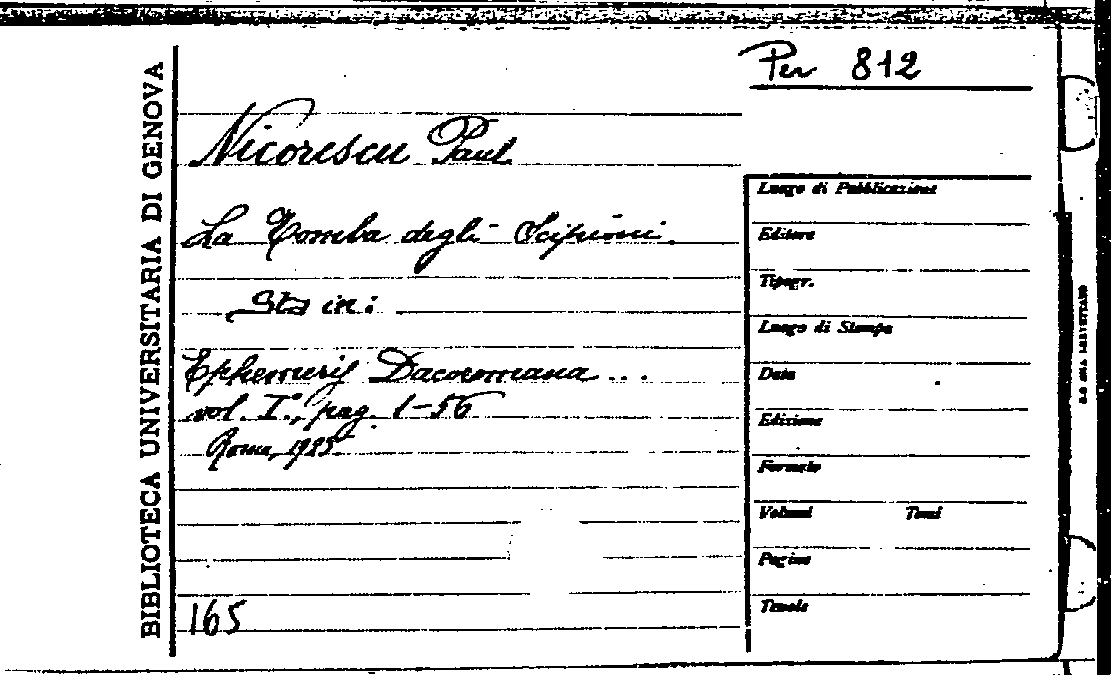 Per 812
BIBLIOTECA UNIVERSITARIA DI GENOVA
Nicorescu Paul
La Tomba degli Scipioni.
Sta in:
Ephemeris Dacoromana ...
vol. I°, pag. 1-56
Roma, 1925.
165
Luogo di Pubblicazione
Editore
Tipogr.
Luogo di Stampa
Data
Edizione
Formato
Volumi Tomi
Pagine
Tavole